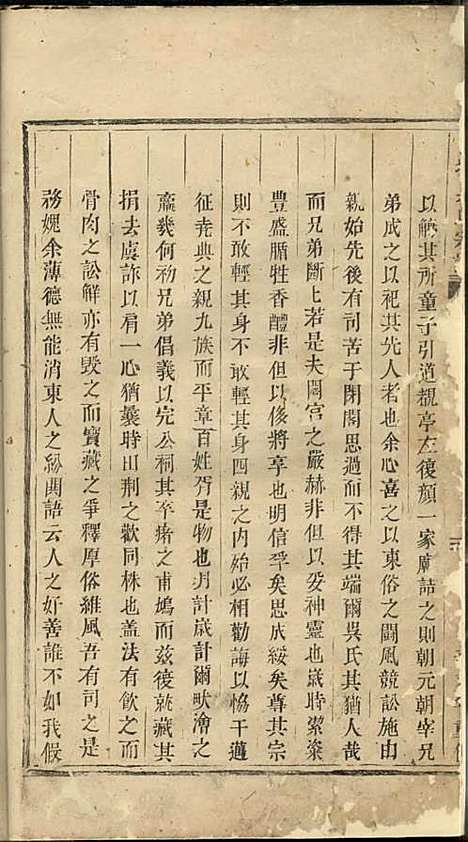 以觴其所童子引道觀亭左復顔一家廟詰之則朝元朝宰兄
弟成之以祀其先人者也余心喜之以東俗之鬪風競訟施由
親始先後有司苦于閉閣思過而不得其端爾吳氏其猶人哉
而兄弟斷上若是夫閟宮之嚴赫非但以妥神靈也歲時索粢
豐盛腯牲香醴非但以俊將享也明信孚矣思成綏矣尊其宗
則不敢輕其身不敢輕其身四親之内始必相勸誨以恪干邁
征堯典之親九族而平章百姓胥是物也月計歲計爾畎澮之
羸幾何初兄弟倡義以完公祠其卒瘏之甫鳩而茲復就藏其
捐去虞詐以肩一心猶曩時田荆之歡同株也蓋法有飲之而
骨肉之訟解亦有毁之而寶藏之爭釋厚俗維風吾有司之是
務媿余薄德無能消東人之紛鬩語云人之好善誰不如我假